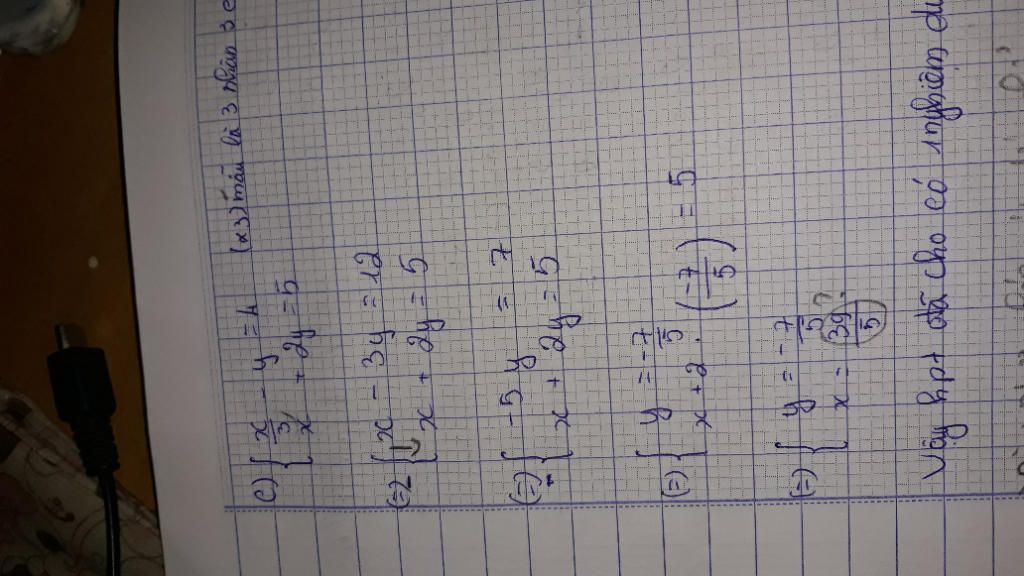 c) { x/3 - y = 4 (x3) mẫu là 3 nhân 3
x + 2y = 5
(=) { x - 3y = 12
x + 2y = 5
(=) { -5y = 7
x + 2y = 5
(=) { y = -7/5
x + 2. (-7/5) = 5
(=) { y = -7/5
x = 39/5 ?
Vậy hpt đã cho có nghiệm